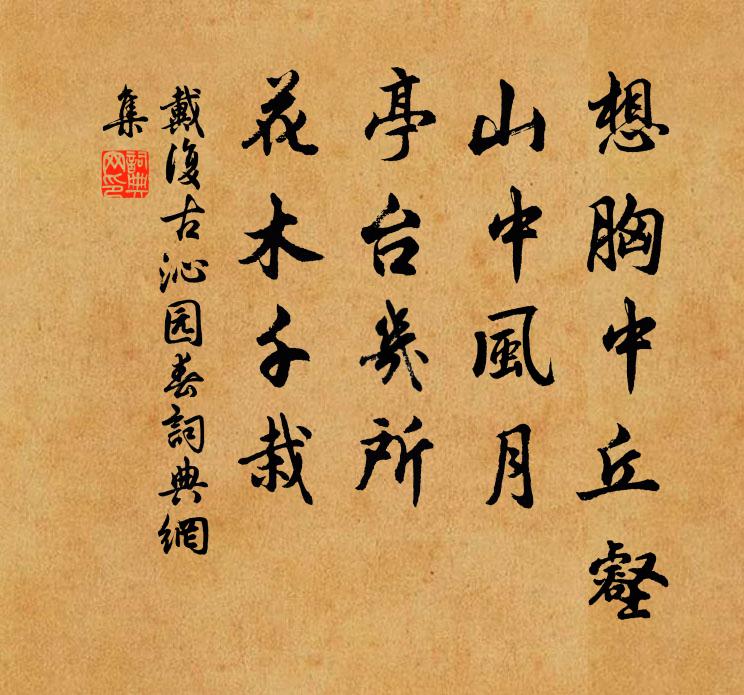 想胸中丘壑
山中風月
亭台幾所
花木千栽
戴復古沁园春詞典網
集
詞典
网印